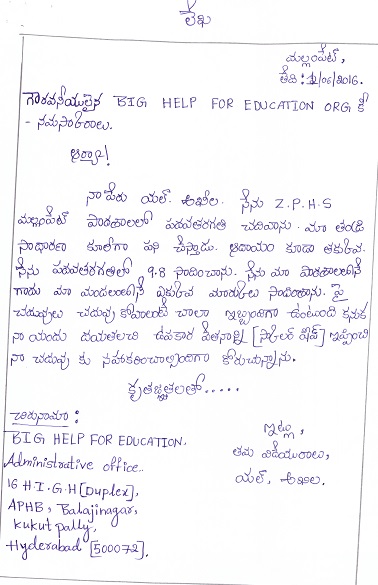 లేఖ
మల్లంపేట్,
తేది: 12/06/2016.
గౌరవనీయులైన BIG HELP FOR EDUCATION ORG కి
- నమస్కారాలు.
ఆర్యా!
నా పేరు యల్. అఖిల. నేను Z.P.H.S
మల్లంపేట్ పాఠశాలలో పదవతరగతి చదివాను. మా తండ్రి
సాధారణ కూలీగా పని చేస్తాడు. ఆదాయం కూడా తక్కువ.
నేను పదవతరగతిలో 9.8 సాదించాను. నేను మా పాఠశాలలోనే
గాదు మా మండలంలోనే ఎక్కువ మార్కులు సాదించాను. పై
చదువులు చదువు కోవాలంటే చాలా ఇబ్బందిగా ఉంటుంది కనుక
నా యందు దయతలచి ఉపకార వేతనాన్ని [స్కాలర్ షిప్] ఇప్పించి
నా చదువు కు సహకరించాల్సిందిగా కోరుచున్నాను.
కృతజ్ఞతలతో.....
చిరునామా:
BIG HELP FOR EDUCATION.
Administrative office.
16 H.I.G.H [Duplex],
APHB, Balajinagar,
kukutpally,
Hyderabad [500072].
ఇట్లు,
తమ విదేయురాలు,
యల్. అఖిల.